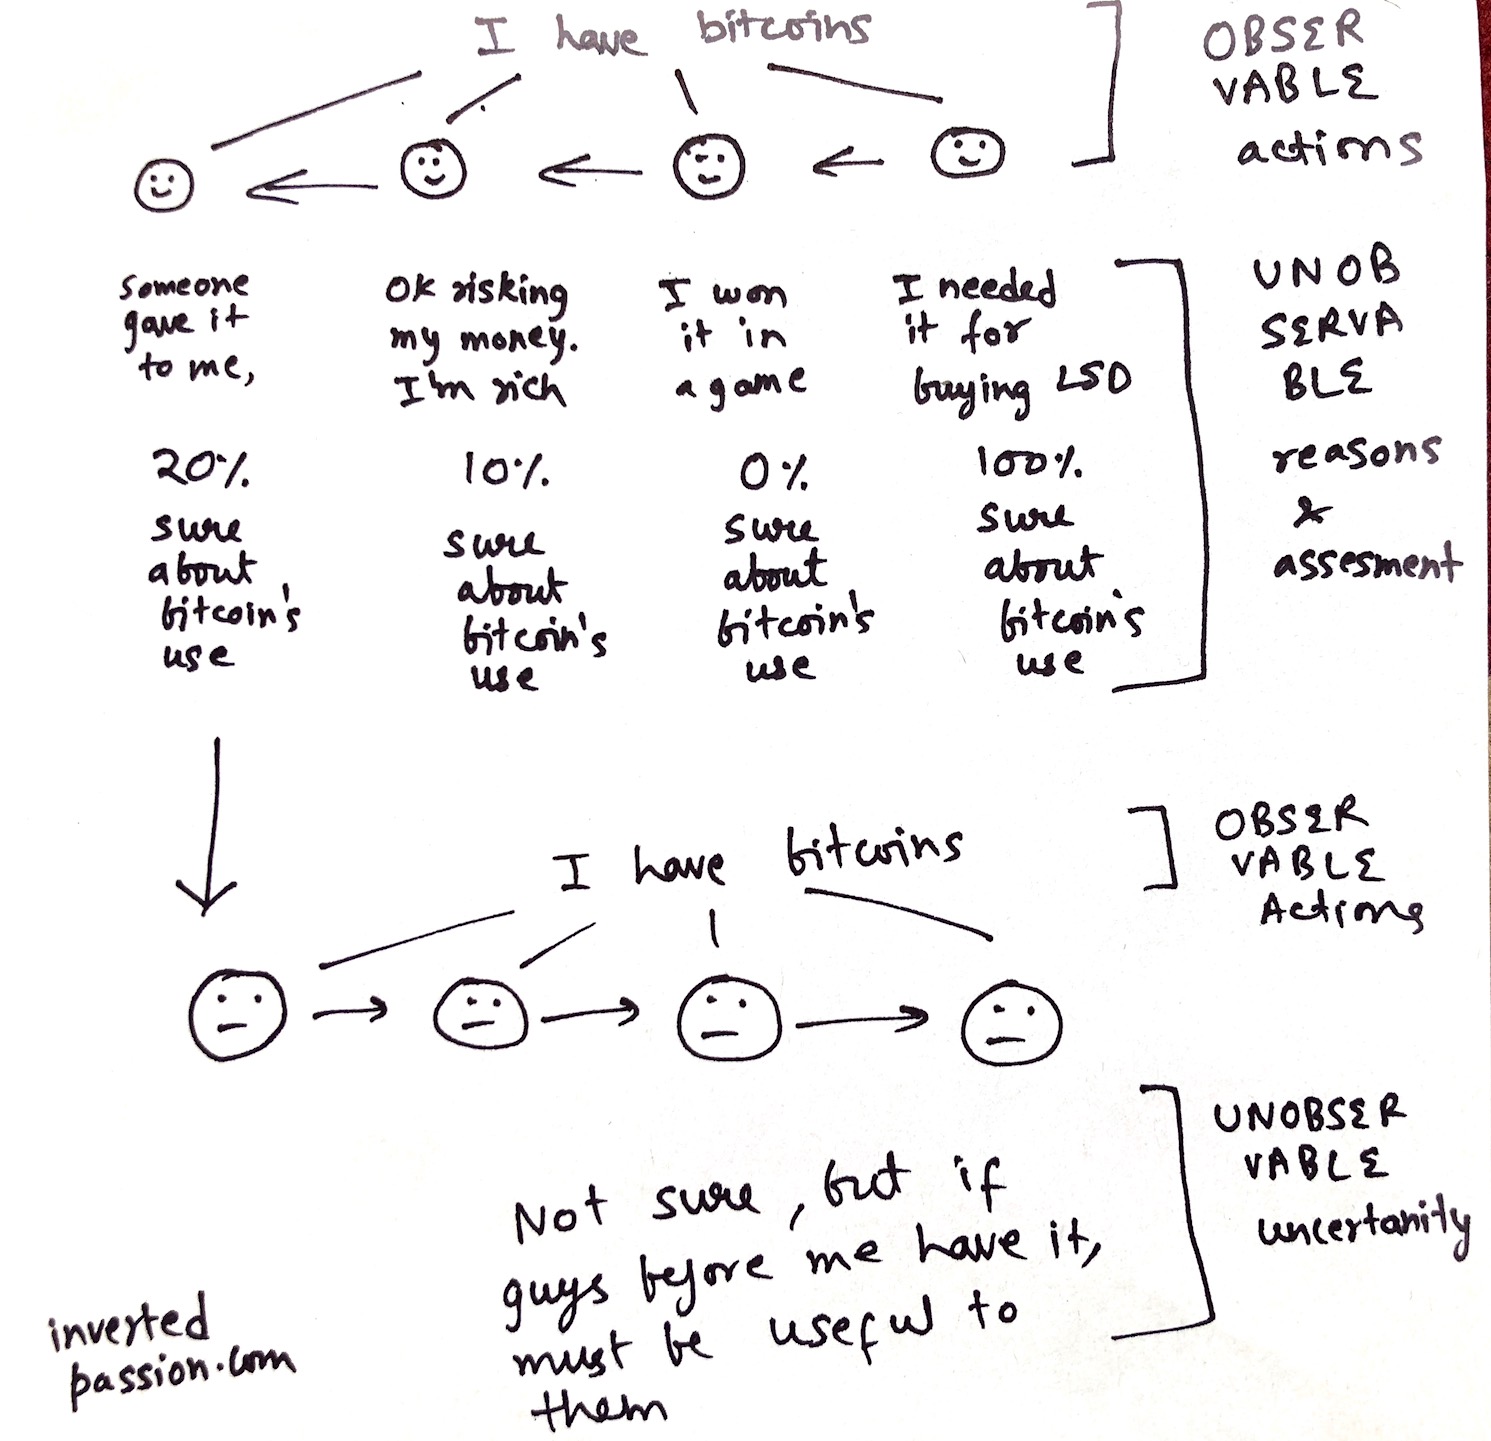 I have bitcoins
OBSER
VABLE
actions
Someone
gave it
to me,
OK risking
my money.
I'm rich
I won
it in
a game
I needed
it for
buying LSD
UNOB
SERVA
BLE
reasons
&
assesment
20%
sure
about
bitcoin's
use
10%
sure
about
bitcoin's
use
0%
sure
about
bitcoin's
use
100%
sure
about
bitcoin's
use
I have bitcoins
OBSER
VABLE
Actions
Not sure, but if
guys before me have it,
must be useful to
them
UNOBSER
VABLE
uncertanity
inverted
passion.com